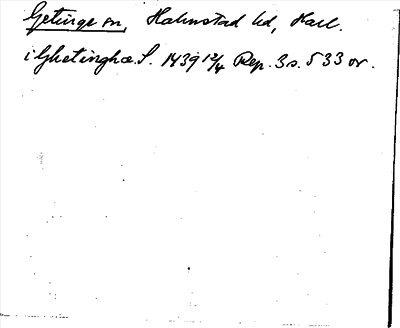 Getinge sn, Halmstad hd, Hall.
i Ghetinghæ S. 1439 12/4 Rep. 3 s. 533 or.